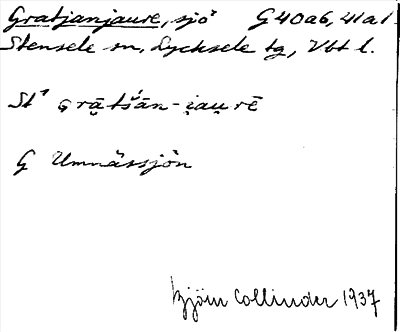 Gratjanjaure, sjö G 40a6, 41a1.
Stensele sn, Lycksele tg, Vbt l.
St ɢrā̭tšán-i̯au̯rē
G Umnässjön
Björn Collinder 1937